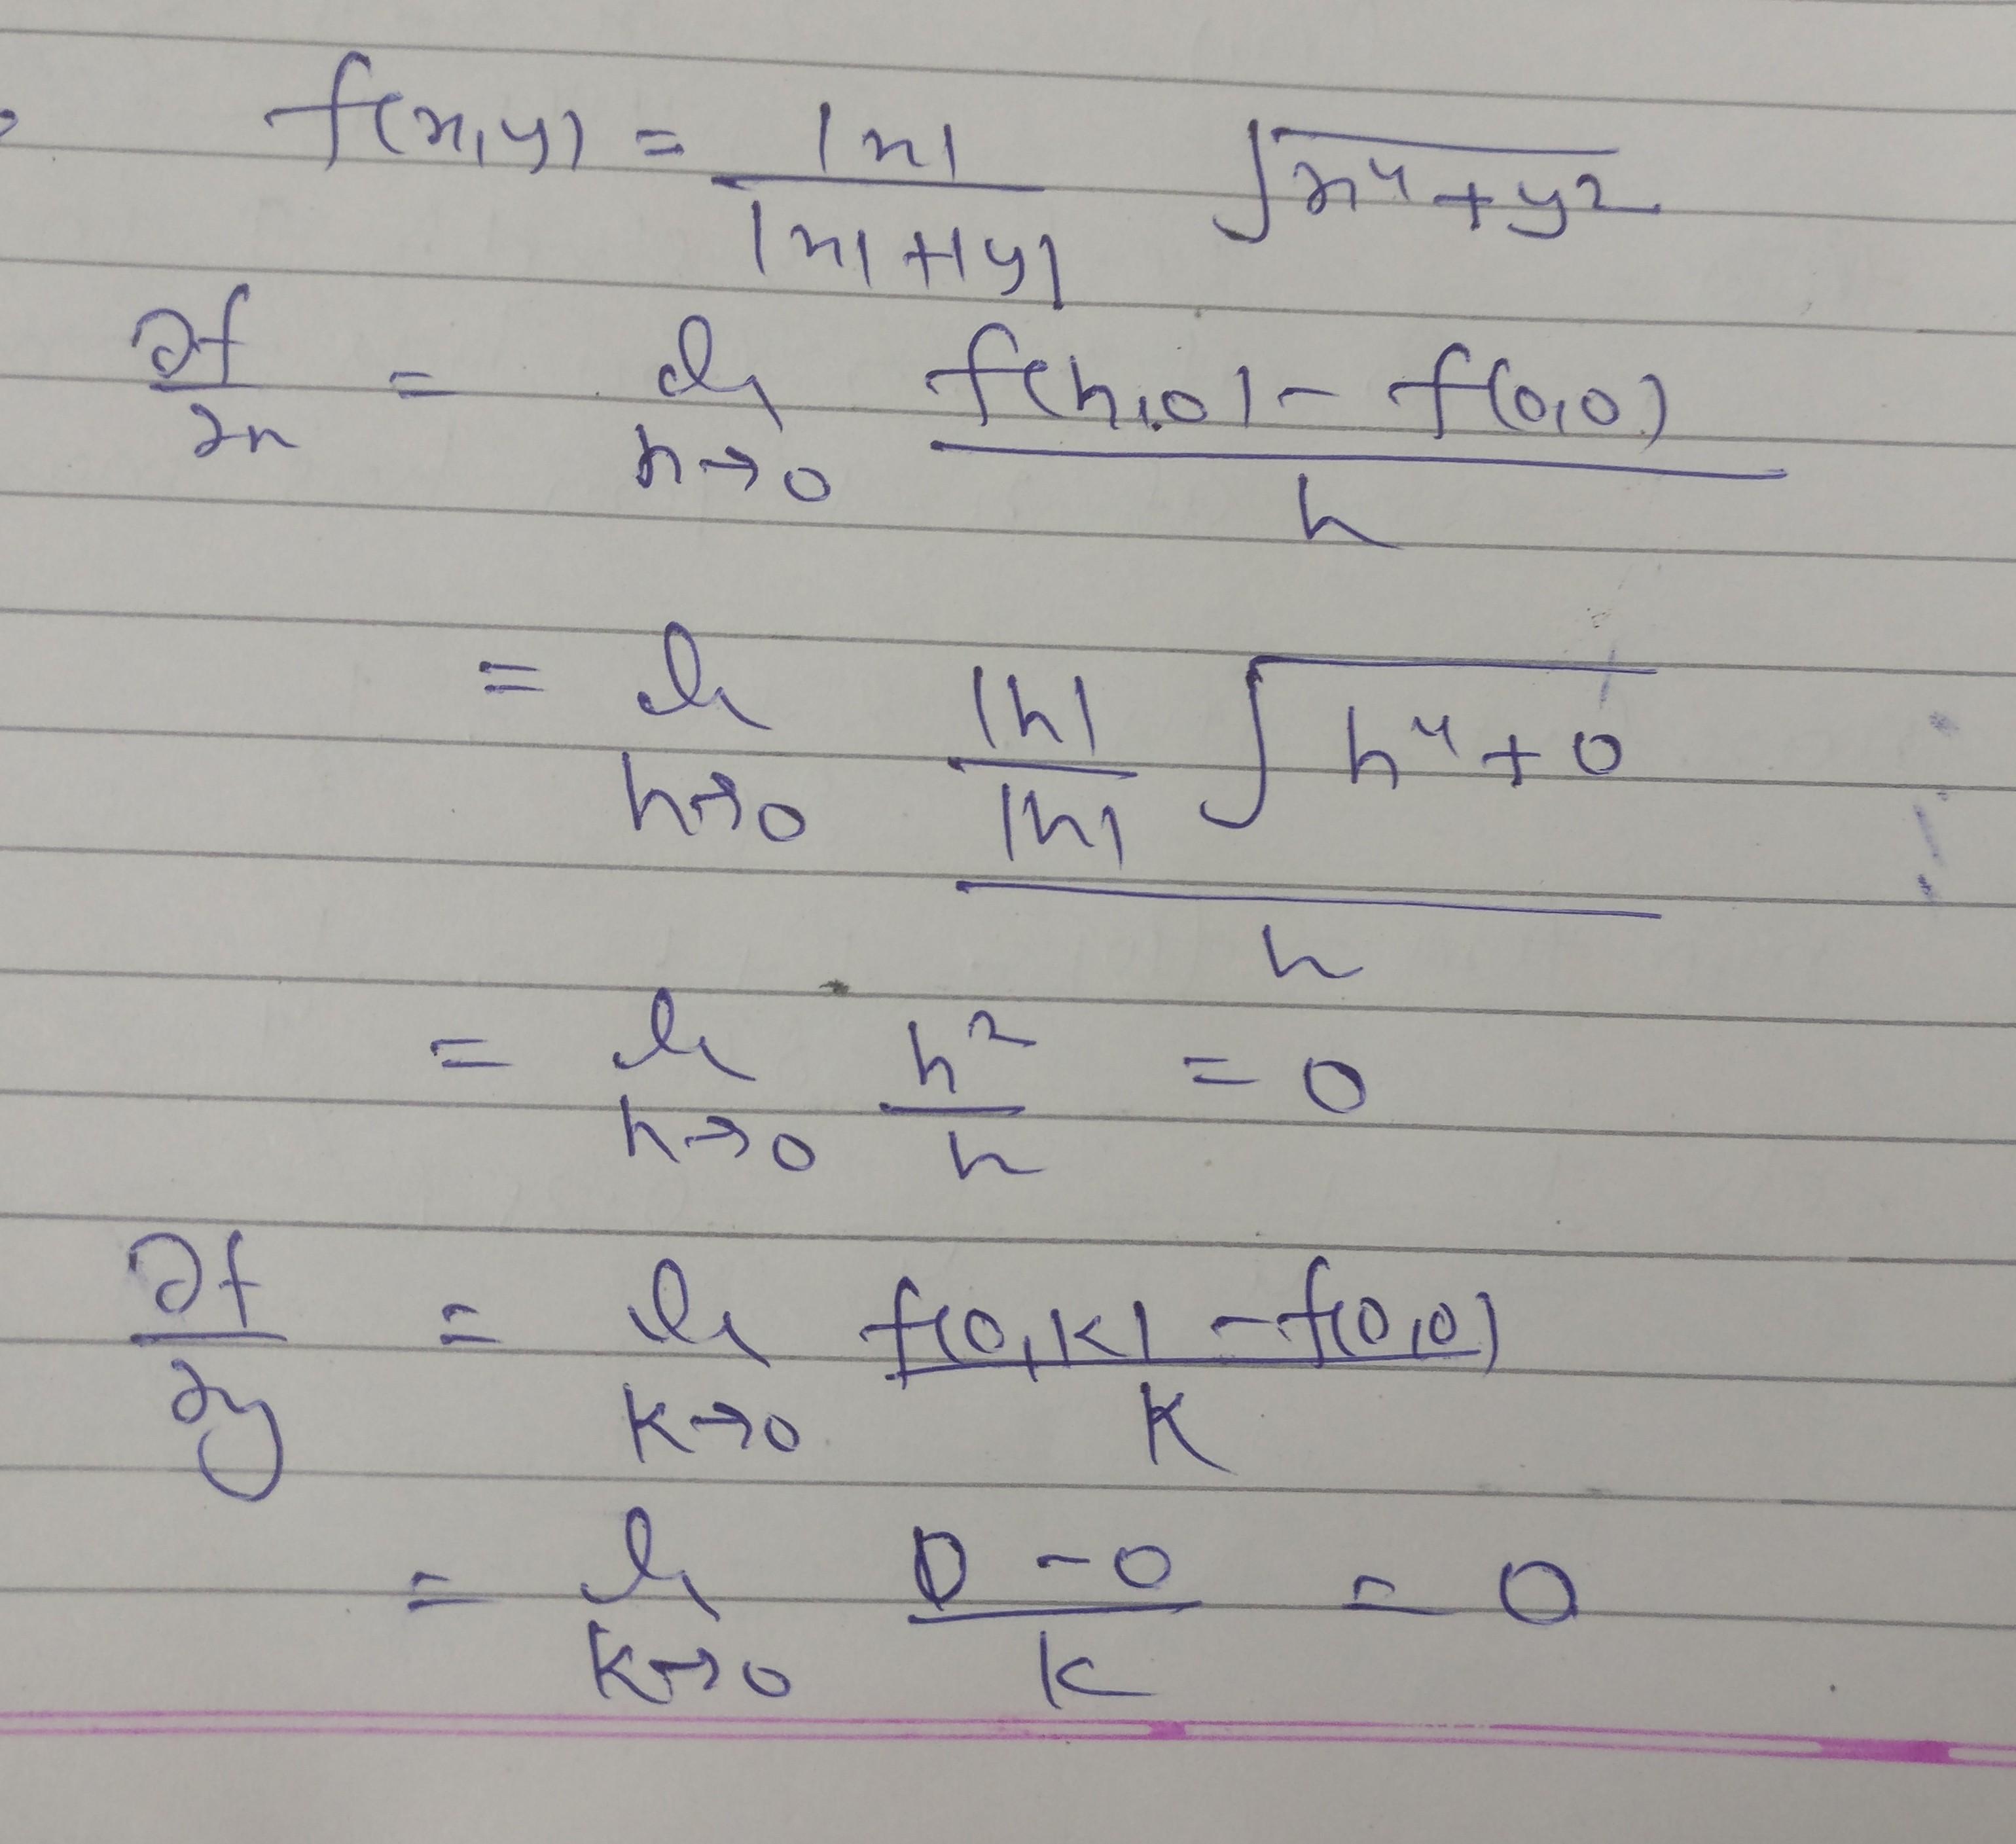 f(x,y) = |x| / (|x|+|y|) √(x⁴+y²)
∂f/∂x = lim h→0 (f(h,0) - f(0,0)) / h
= lim h→0 (|h|/|h| √(h⁴+0)) / h
= lim h→0 h²/h = 0
∂f/∂y = lim k→0 (f(0,k) - f(0,0)) / k
= lim k→0 (0-0)/k = 0